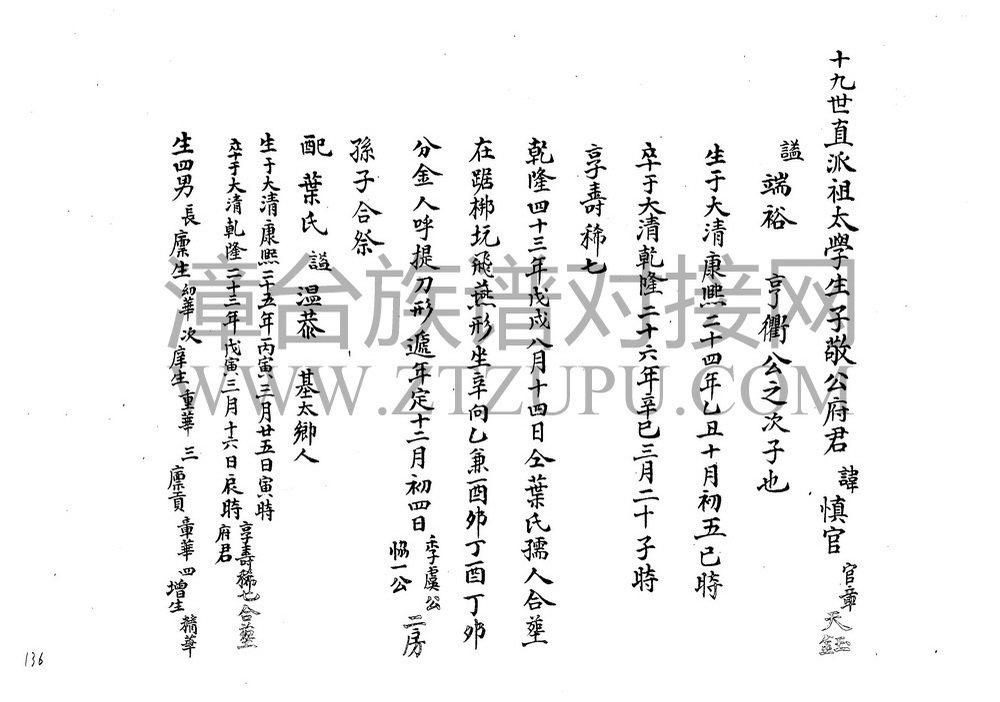 十九世直派祖太學生子敬公府君 諱慎官 官章天鈺
諡端裕 亨衢公之次子也
生于大清康熙二十四年乙丑十月初五巳時
卒于大清乾隆二十六年辛巳三月二十子時
享壽稀七
乾隆四十三年戊戌八月十四日仝葉氏孺人合塟
在踞梆坑飛燕形坐辛向乙兼酉夘丁酉丁夘
分金人呼提刀形遞年定十二月初四日 季虞公 恊一公 二房
孫子合祭
配葉氏諡温恭 基太鄉人
生于大清康熙二十五年丙寅三月廿五日寅時
卒于大清乾隆二十三年戊寅三月十六日辰時 享壽稀七合塟 府君
生四男長廩生如華次庠生重華三廩貢章華四增生精華
漳台族谱对接网
WWW.ZTZUPU.COM
136